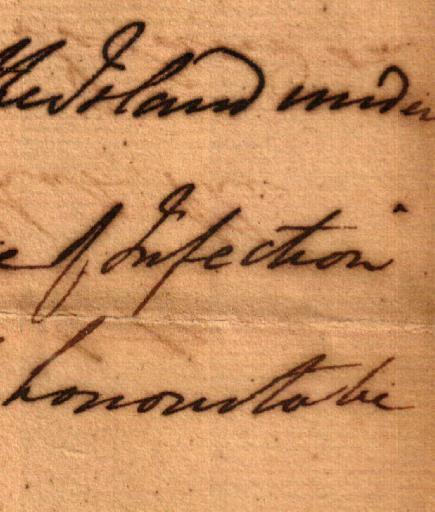 the Island under
of Infection
honour to be